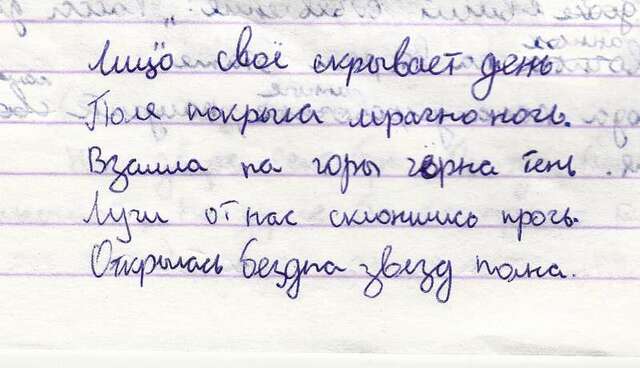 Лицо своё скрывает день
Поля покрыла мрачно ночь.
Взашла на горы чёрна тень.
Лучи от нас склонились прочь.
Открылась бездна звезд полна.